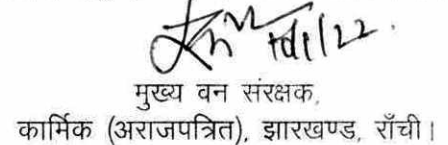 मुख्य वन संरक्षक,
कार्मिक (अराजपत्रित), झारखण्ड, राँची।